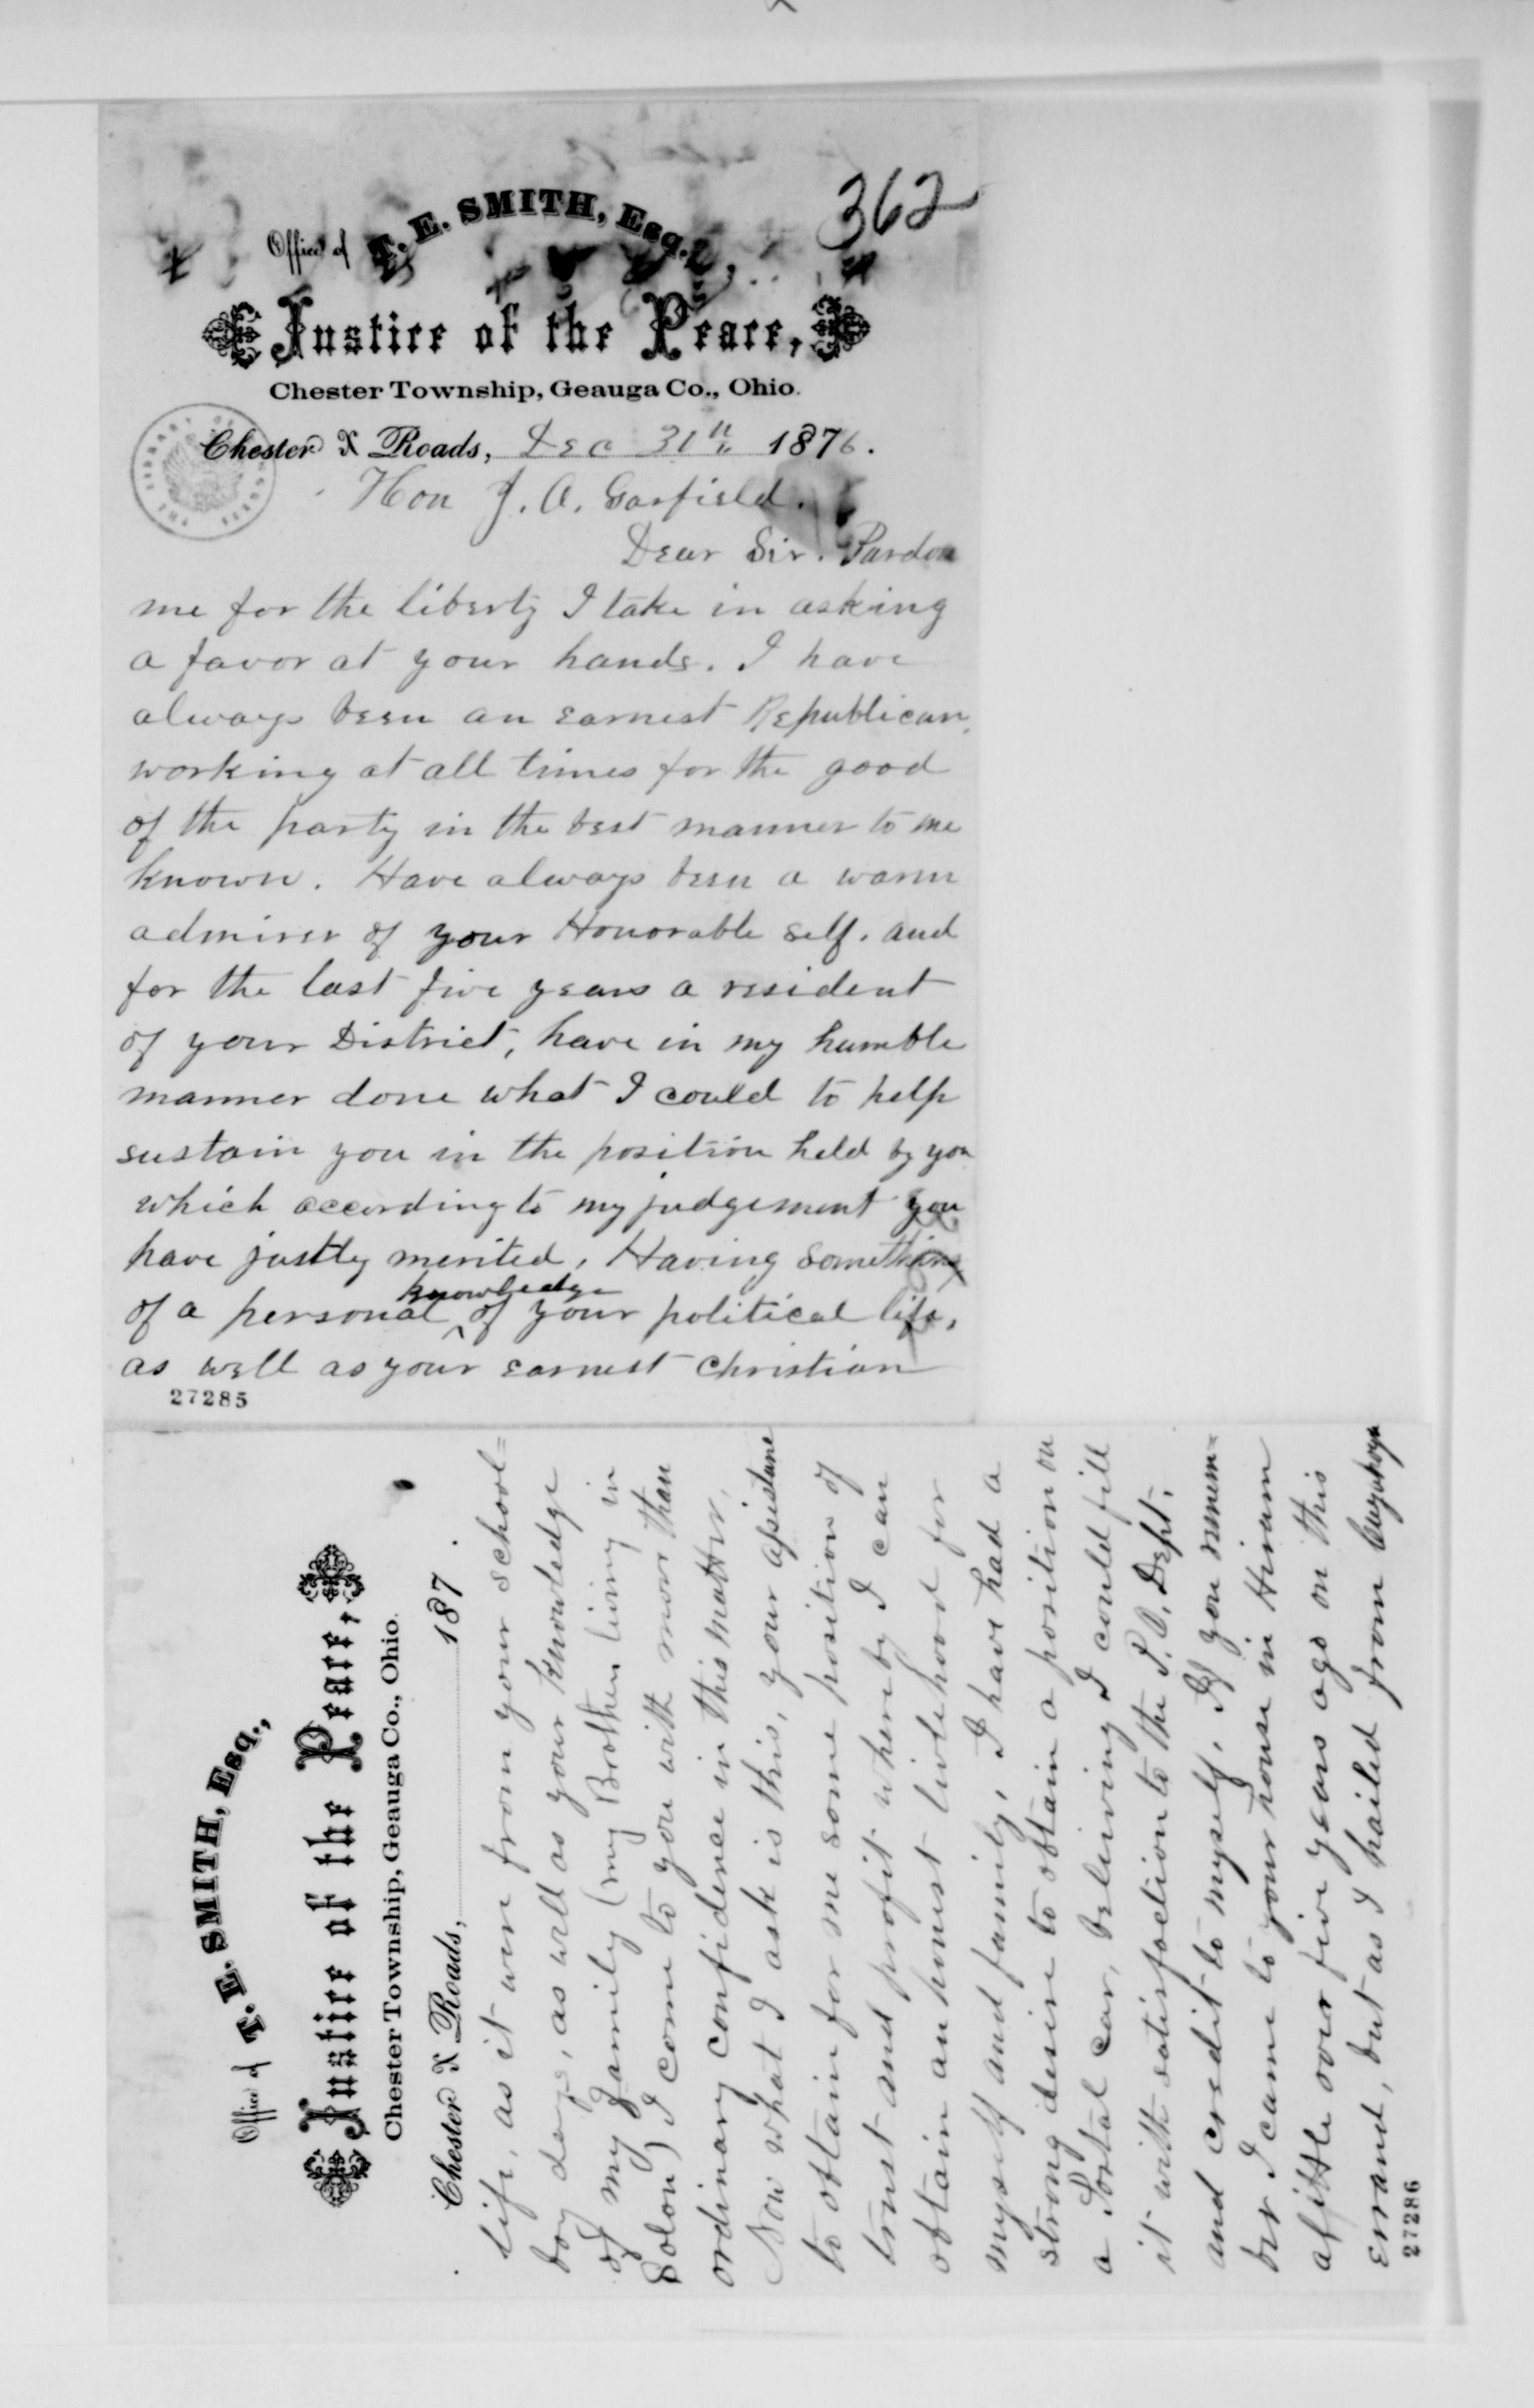 362
Office of T. E. SMITH, Esq.,
Justice of the Peace,
Chester Township, Geauga Co., Ohio.
Chester X Roads, Dec 31st 1876.
Hon J. A. Garfield.
Dear Sir. Pardon
me for the liberty I take in asking
a favor at your hands. I have
always been an earnest Republican,
working at all times for the good
of the party in the best manner to me
known. Have always been a warm
admirer of your Honorable self. and
for the last five years a resident
of your District, have in my humble
manner done what I could to help
sustain you in the position held by you
which according to my judgement you
have justly merited. Having something
of a personal knowledge of your political life,
as well as your earnest Christian
27285
Office of T. E. SMITH, Esq.,
Justice of the Peace,
Chester Township, Geauga Co., Ohio.
Chester X Roads, 187 .
life, as it were from your school=
boy days, as well as your knowledge
of my family (my Brother living in
Solon) I come to you with more than
ordinary confidence in this matter.
Now what I ask is this, your assistance
to obtain for me some position of
trust and profit whereby I can
obtain an honest livelihood for
myself and family. I have had a
strong desire to obtain a position on
a Postal car, beliving I could fill
it with satisfaction to the P.O. Dept.
and credit to myself. If you remem=
ber I came to your house in Hiram
a little over five years ago on this
errand, but as I hailed from Cuyahoga
27286